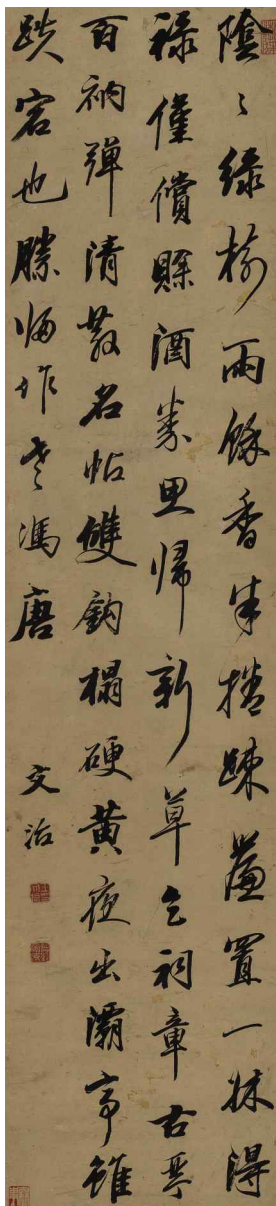 陰〻綠樹雨餘香半捲疎簾置一牀得
祿僅償賒酒券思歸新草乞祠章古琴
百衲彈清散名帖雙鈎榻硬黃夜出灞亭雖
跌宕也勝歸作老馮唐
文治